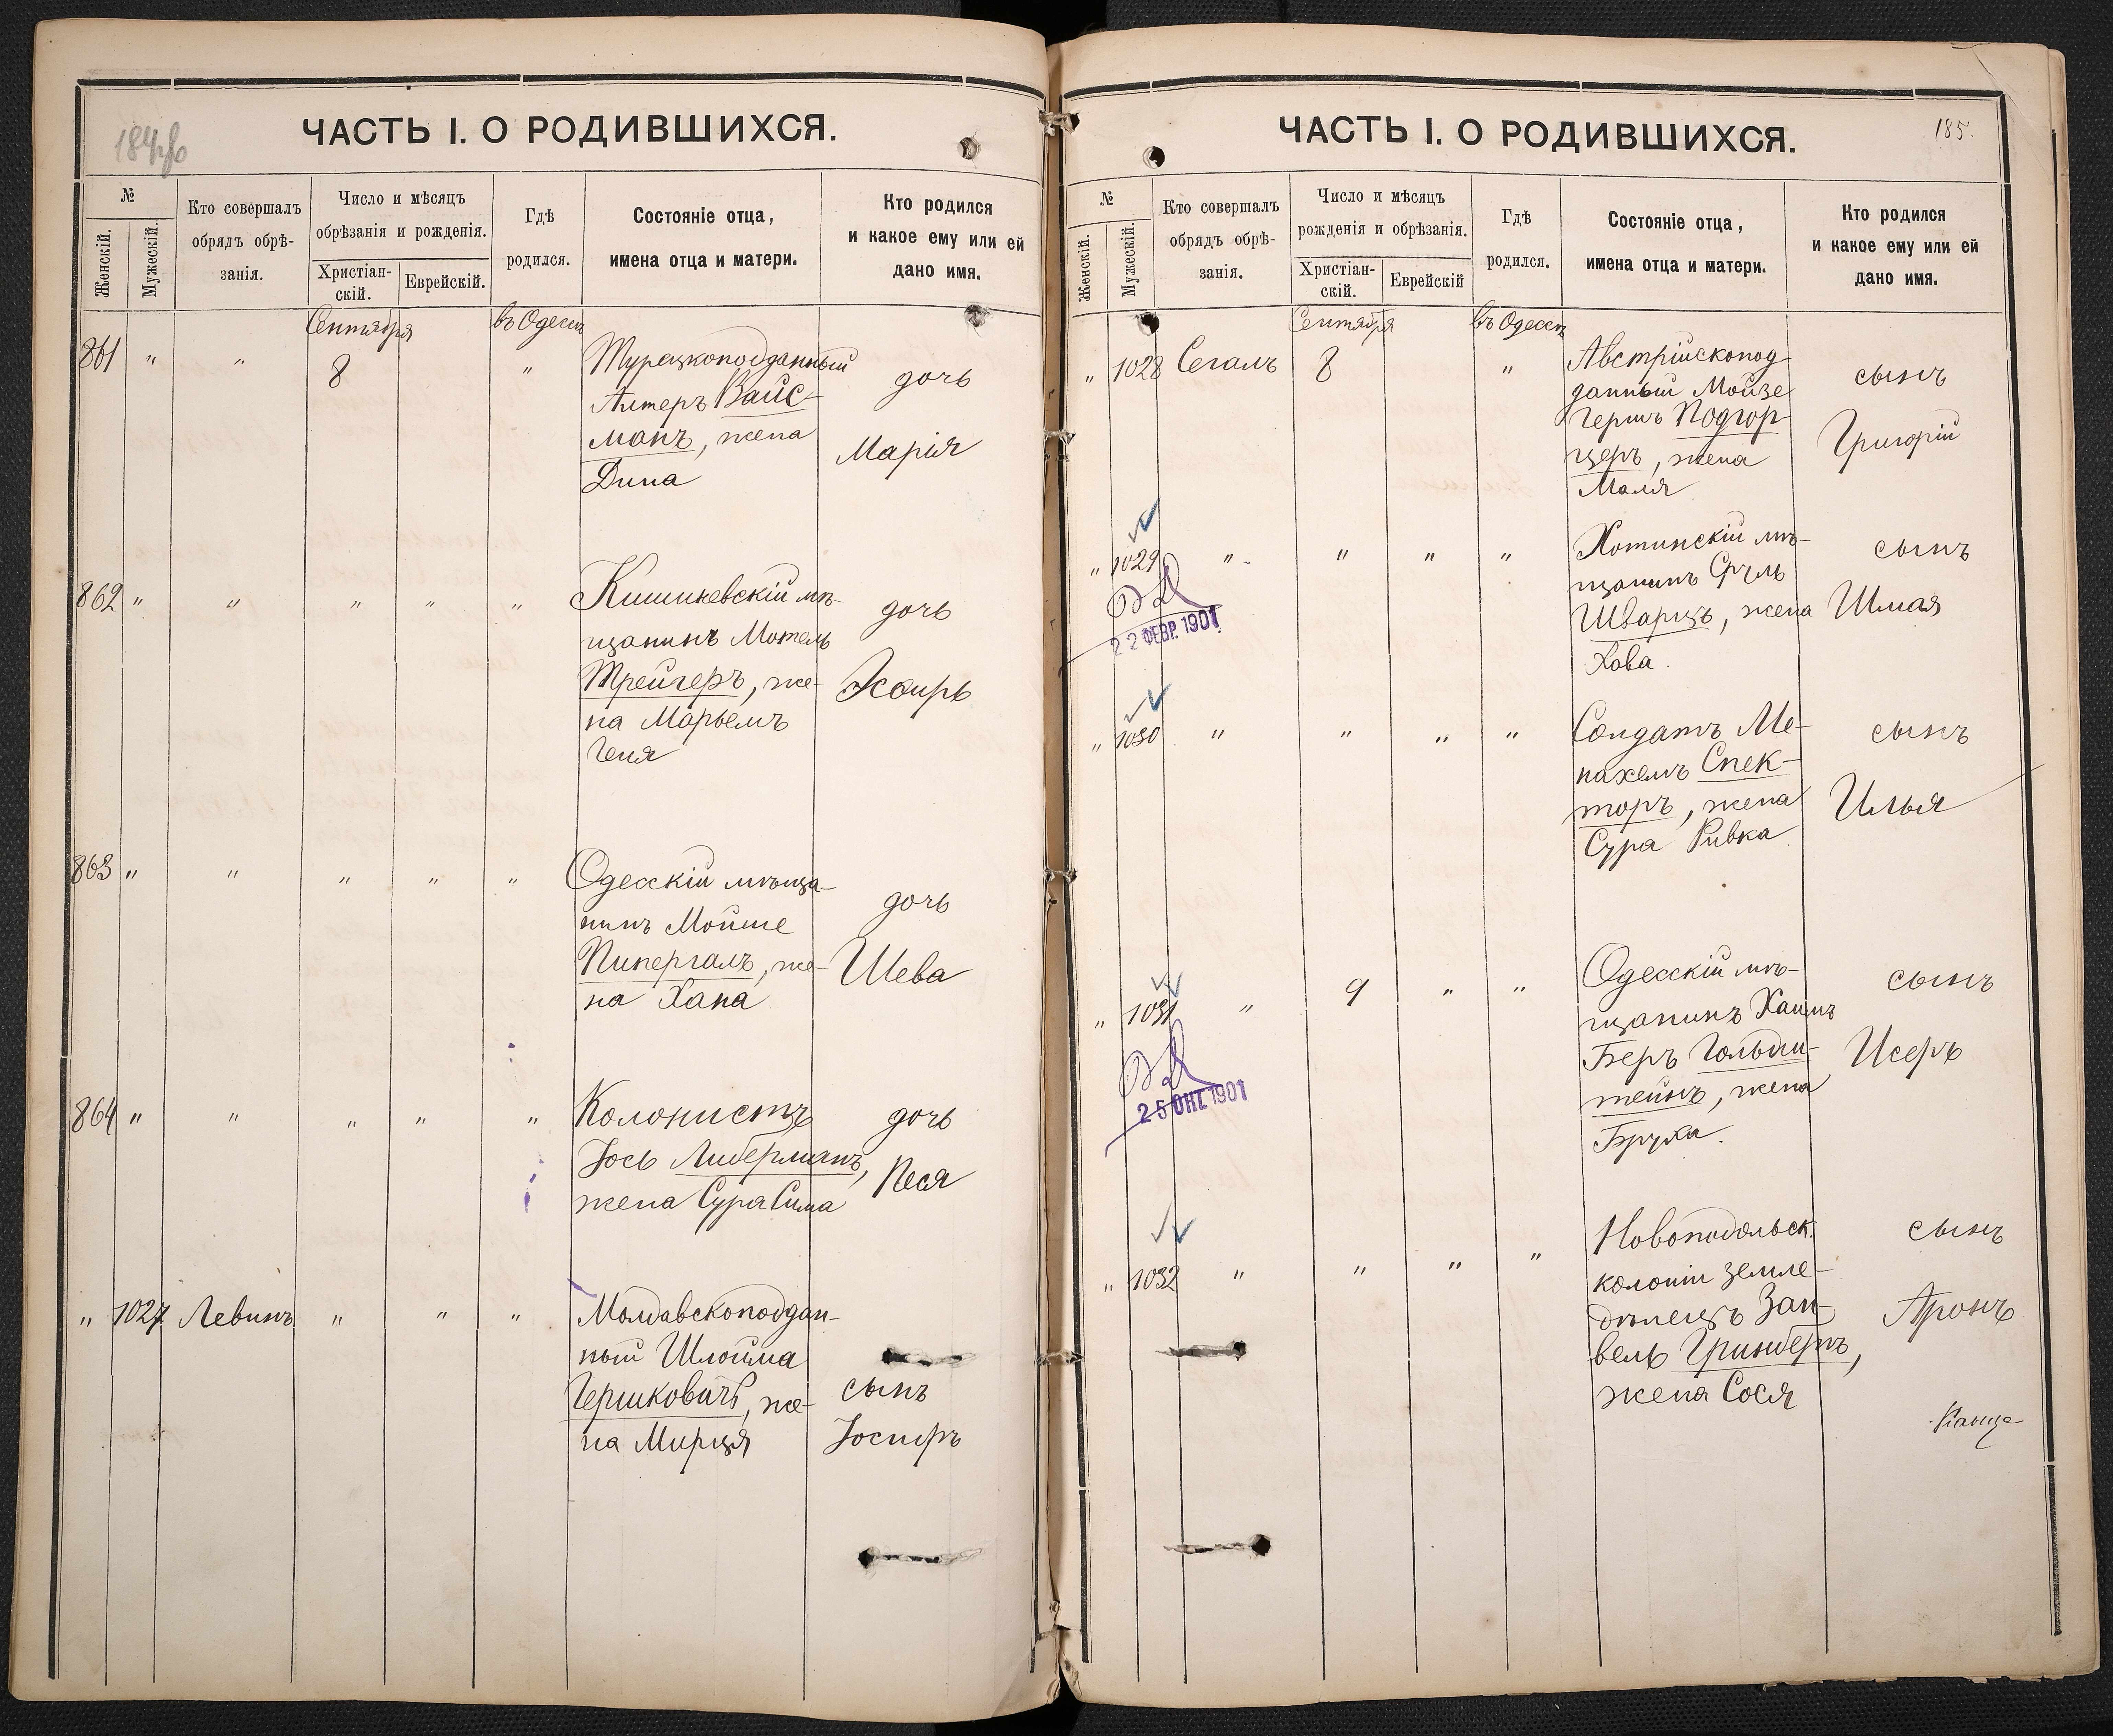 184об
ЧАСТЬ I. О РОДИВШИХСЯ.
№
Женскій.
Мужескій.
Кто совершалъ
обрядъ обрѣ-
занія.
Число и мѣсяцъ
обрѣзанія и рожденія.
Христіан-
скій.
Еврейскій.
Гдѣ
родился.
Состояніе отца,
имена отца и матери.
Кто родился
и какое ему или ей
дано имя.
Сентября
въ Одессѣ
861 " " 8 "
Турецкоподданный
Алтеръ Вайс-
манъ, жена
Дина
дочь
Марія
862 " " " " "
Кишиневскій мѣ-
щанинъ Мотель
Трейгеръ, же-
на Марьемъ
Геня
дочь
Эсѳирь
863 " " " " "
Одесскій мѣща-
нинъ Мойше
Пипергалъ, же-
на Хана
дочь
Шева
864 " " " " "
Колонистъ
Іось Либерманъ,
жена Сура Сима
дочь
Песя
" 1027 Левинъ " " "
Молдавскоподдан-
ный Шлойма
Гершковичъ, же-
на Мирця
сынъ
Іосифъ
ЧАСТЬ I. О РОДИВШИХСЯ.
185.
№
Женскій.
Мужескій.
Кто совершалъ
обрядъ обрѣ-
занія.
Число и мѣсяцъ
рожденія и обрѣзанія.
Христіан-
скій.
Еврейскій
Гдѣ
родился.
Состояніе отца,
имена отца и матери.
Кто родился
и какое ему или ей
дано имя.
Сентября
въ Одессѣ
" 1028 Сегалъ 8 "
Австрійскопод-
данный Мойзе
Гершъ Подгор-
церъ, жена
Маля
сынъ
Григорій
" 1029 " " " "
22 ФЕВР. 1901
Хотинскій мѣ-
щанинъ Сруль
Шварцъ, жена
Хова.
сынъ
Шмая
" 1030 " " " "
Солдатъ Ме-
нахемъ Спек-
торъ, жена
Сура Ривка
сынъ
Илья
" 1031 " 9 " "
25 ОКТ. 1901
Одесскій мѣ-
щанинъ Хаимъ
Беръ Гольдш-
тейнъ, жена
Бруха.
сынъ
Исеръ
" 1032 " " " "
Новоподольск.
колоніи земле-
дѣлецъ Зан-
вель Гринбергъ,
жена Сося
сынъ
Аронъ